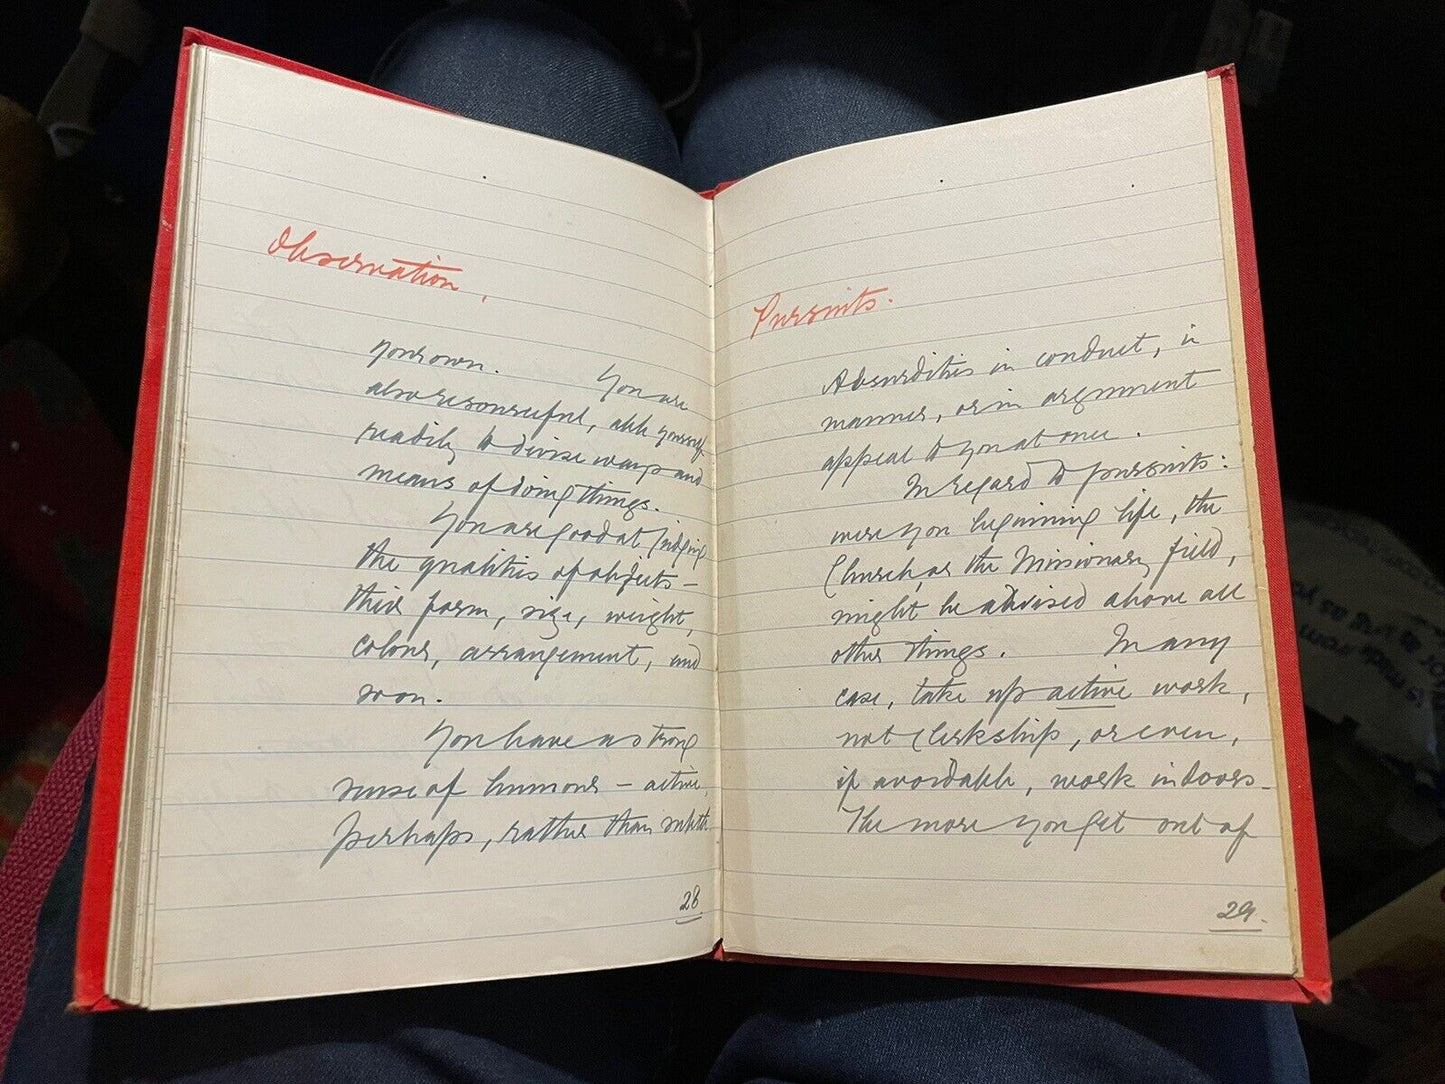 Observation.
your own. You are
also resourceful, able yourself
readily to devise ways and
means of doing things.
You are good at judging
the qualities of objects –
their form, size, weight,
colour, arrangement, and
so on.
You have a strong
sense of humour – active,
perhaps, rather than subtle
28
Pursuits.
Absurdities in conduct, in
manner, or in argument
appeal to you at once.
In regard to pursuits:
were you beginning life, the
Church, or the Missionary field,
might be advised above all
other things. In any
case, take up active work,
not clerkship, or even,
if avoidable, work indoors.
The more you get out of
29.